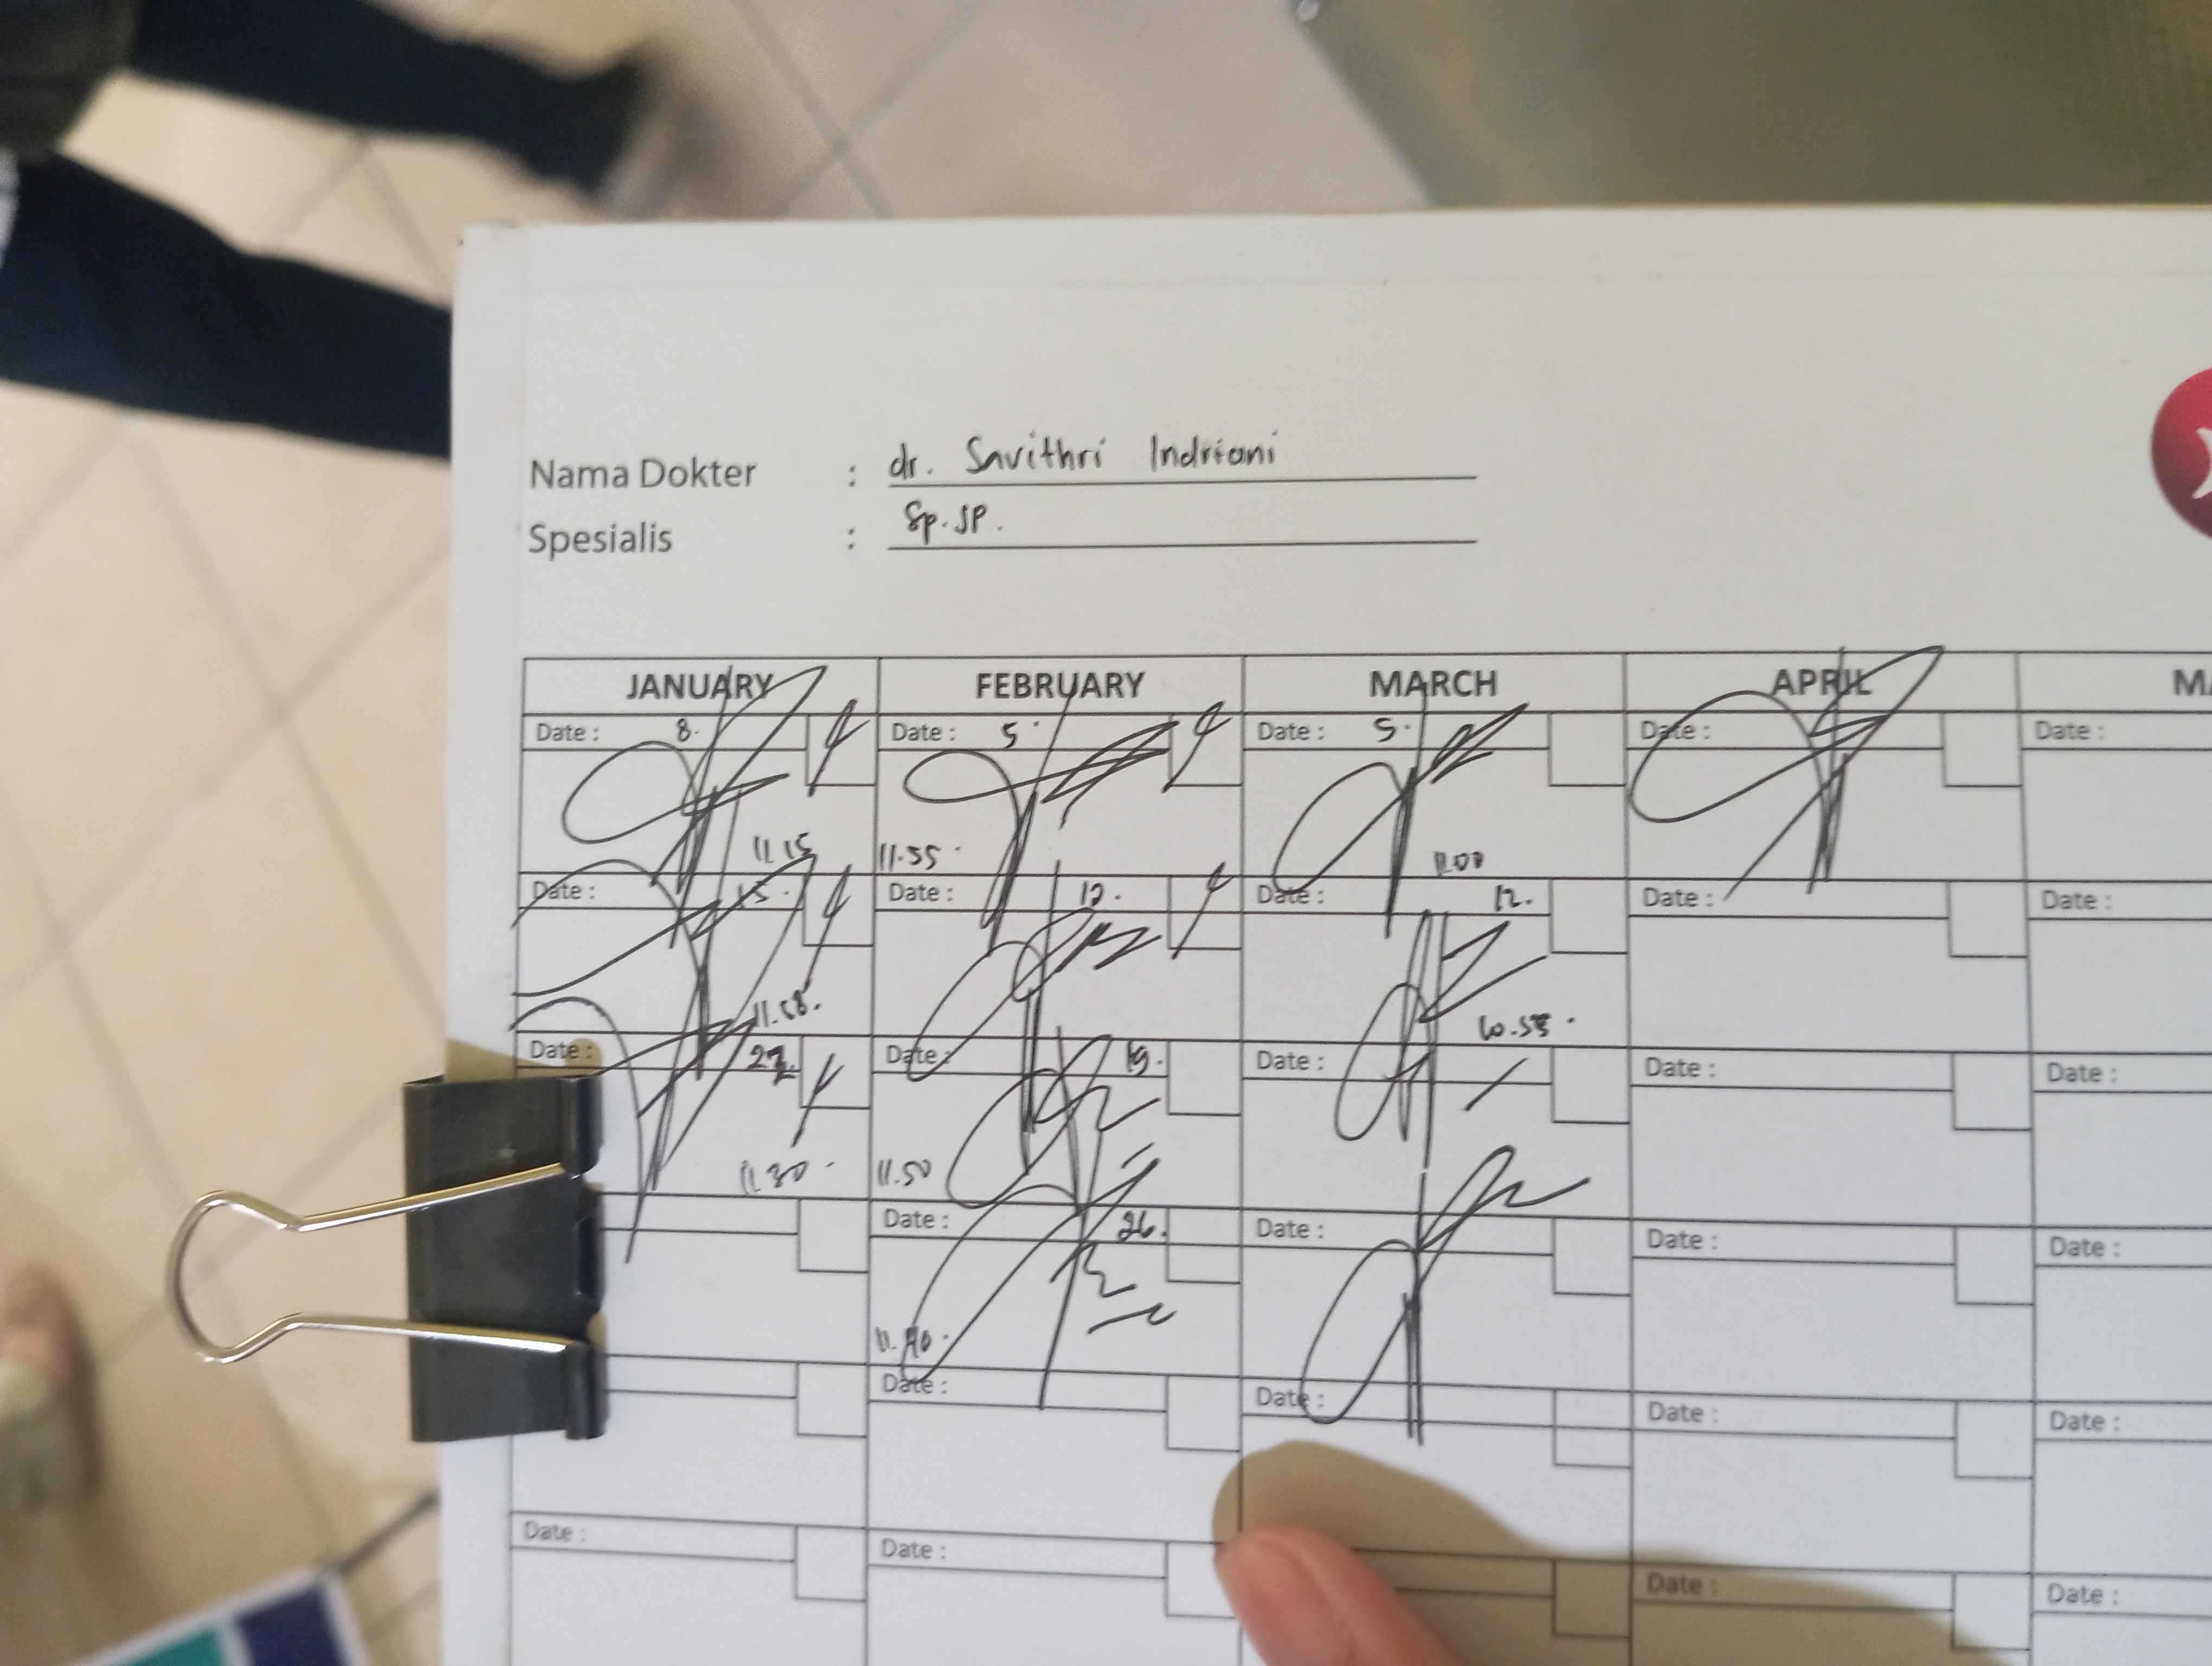 Nama Dokter : dr. Savithri Indriani
Spesialis : Sp.JP.
JANUARY FEBRUARY MARCH APRIL
Date : 8. Date : 5. Date : 5. Date : Date :
11.15 11.55. 11.00
Date : 15. Date : 12. Date : 12. Date : Date :
11.58. 10.55.
Date : 22. Date : 19. Date : Date : Date :
11.30. 11.50
Date : 26. Date : Date : Date :
Date : Date : Date : Date :
Date : Date : Date : Date :